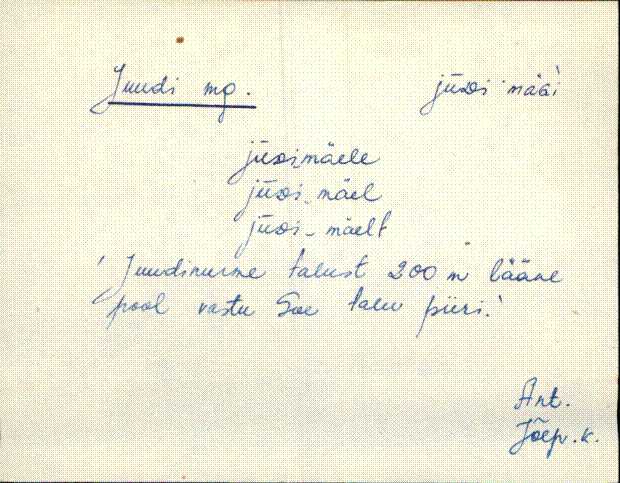 Juudi mg. jüɒi mää'
jüɒi-mäele
jüɒi-mäel
jüɒi-mäelt
' Juudinurme talust 200 m lääne
pool vastu Soe talu piiri.'
Ant.
Jõep.k.